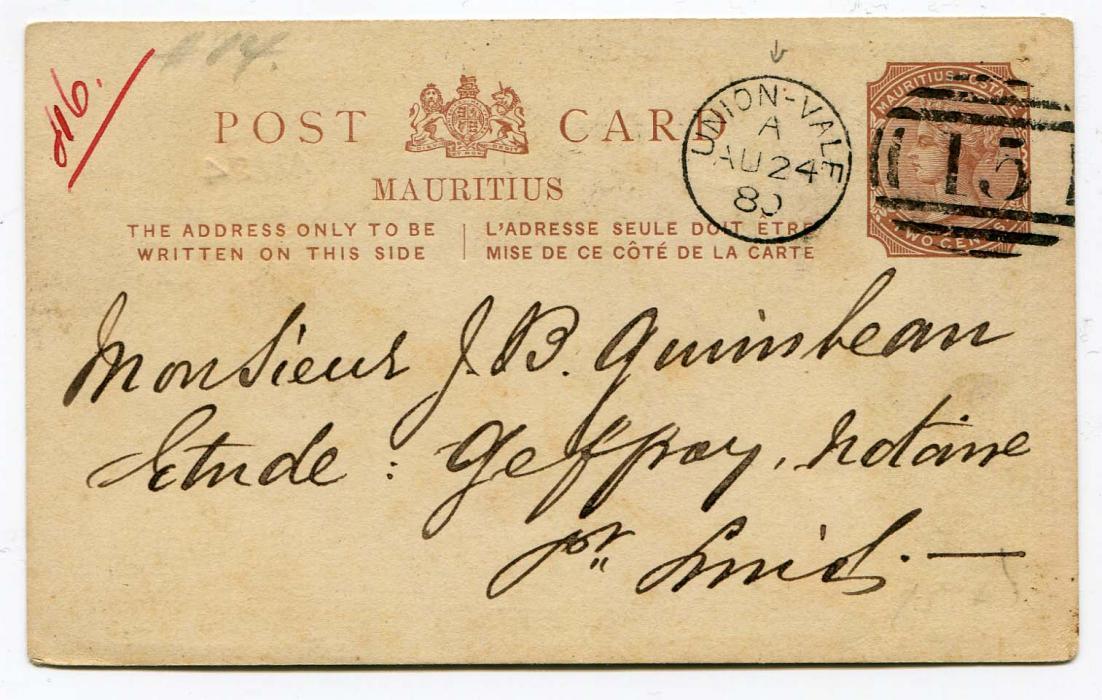 POST CARD
MAURITIUS
THE ADDRESS ONLY TO BE
WRITTEN ON THIS SIDE
L'ADRESSE SEULE DOIT ÊTRE
MISE DE CE CÔTÉ DE LA CARTE
UNION-VALE
A
AU 24
80
MAURITIUS POSTA
TWO CENTS
15
Monsieur J. B. Quimbeau
Etude : Geffroy, Notaire
Pt. Louis. —